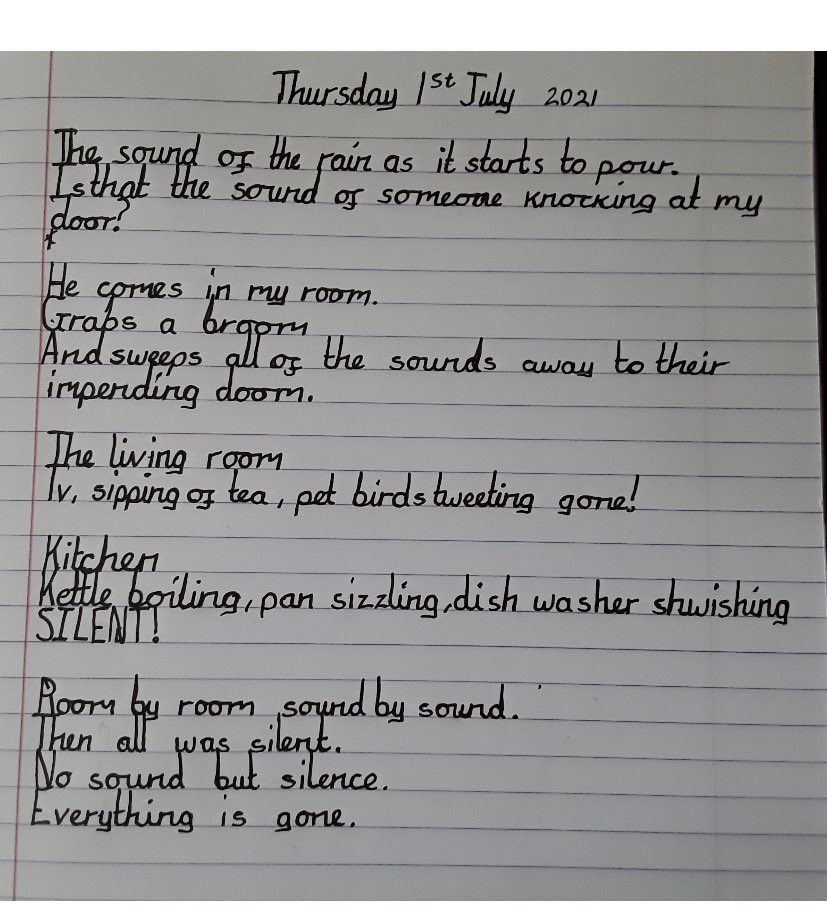 Thursday 1st July 2021
The sound of the rain as it starts to pour.
Is that the sound of someone knocking at my
door?
He comes in my room.
Grabs a broom
And sweeps all of the sounds away to their
impending doom.
The living room
Tv, sipping of tea, pet birds tweeting gone!
Kitchen
Kettle boiling, pan sizzling, dish washer shwishing
SILENT!
Room by room, sound by sound.
Then all was silent.
No sound but silence.
Everything is gone.